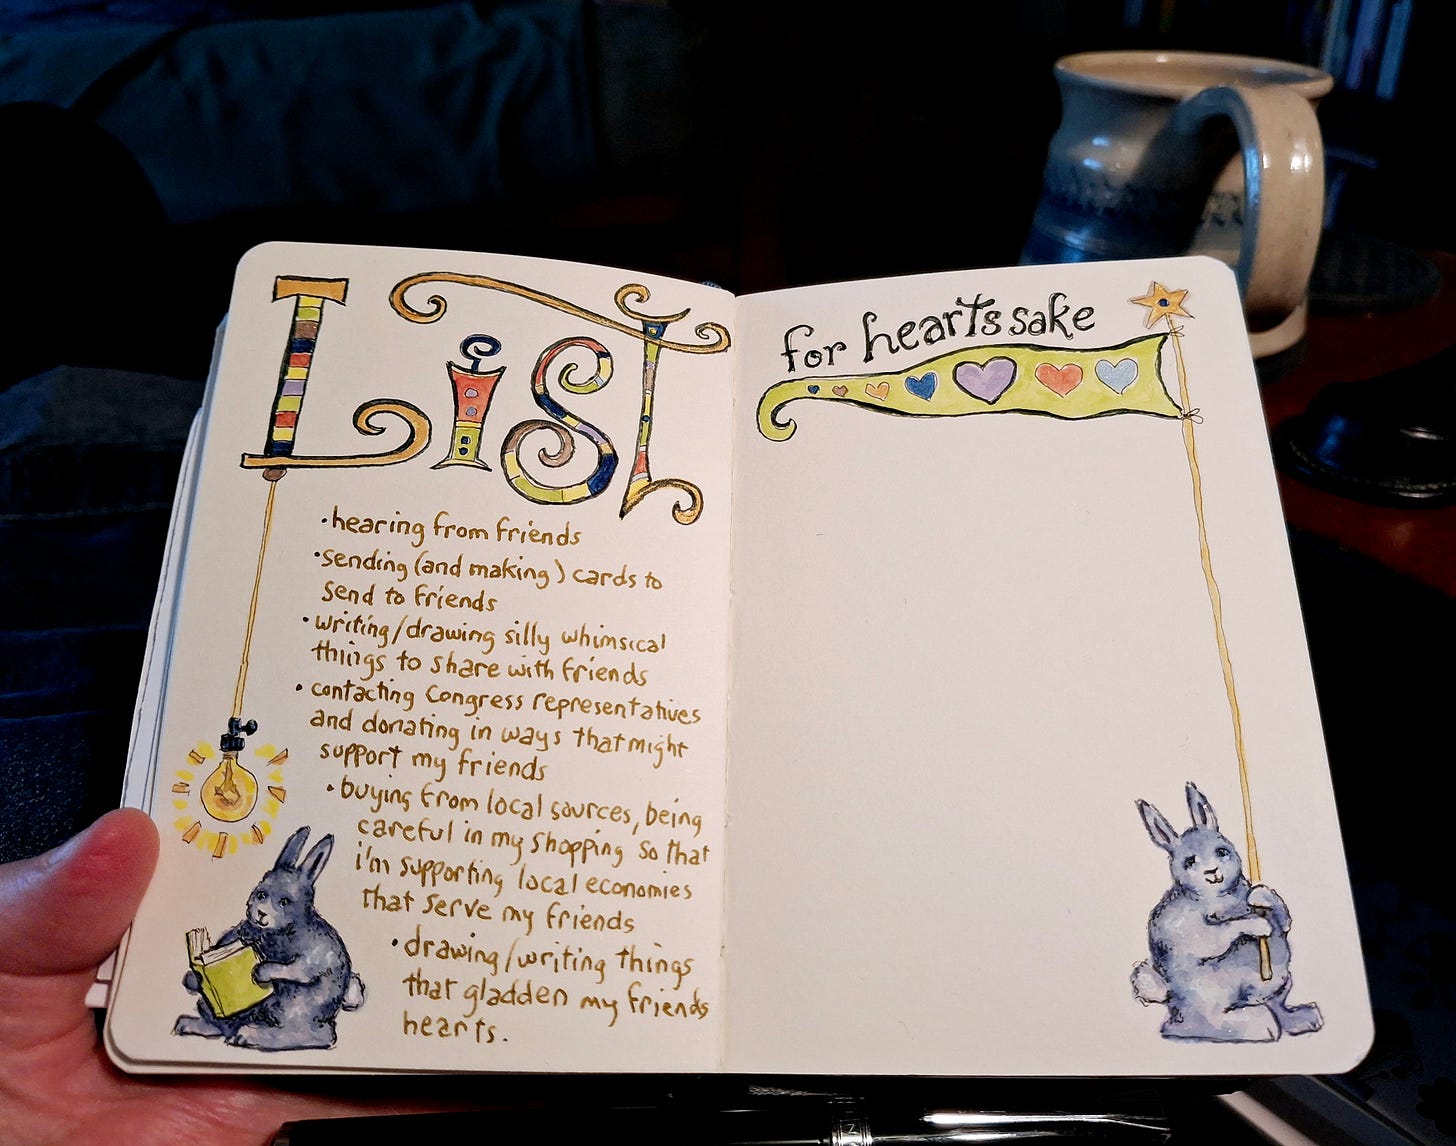 List
• hearing from friends
• sending (and making) cards to
send to friends
• writing/drawing silly whimsical
things to share with friends
• contacting Congress representatives
and donating in ways that might
support my friends
• buying from local sources, being
careful in my shopping so that
i'm supporting local economies
that serve my friends
• drawing/writing things
that gladden my friends
hearts.
for hearts sake